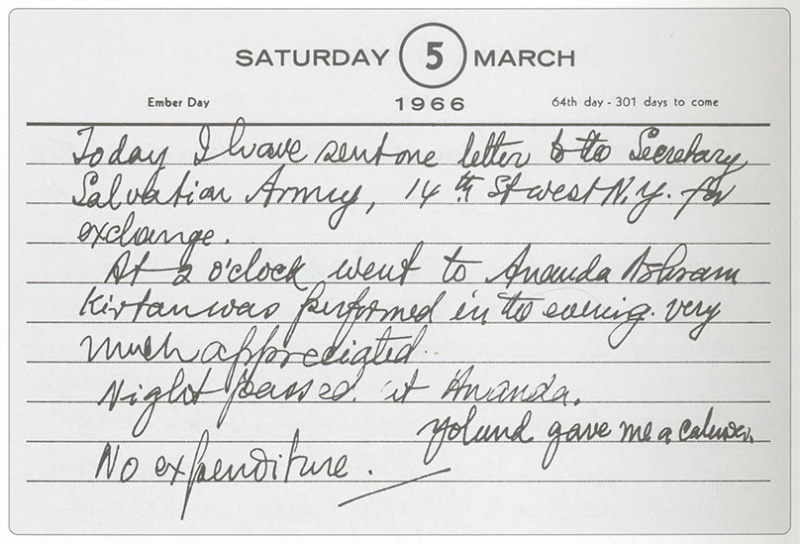 SATURDAY 5 MARCH
Ember Day 1966 64th day - 301 days to come
Today I have sent one letter to the Secretary
Salvation Army, 14th St west N.Y. for
exchange.
At 2 o'clock went to Ananda Ashram
Kirtan was performed in the evening. very
much appreciated.
Night passed at Ananda.
gave me a
No expenditure.